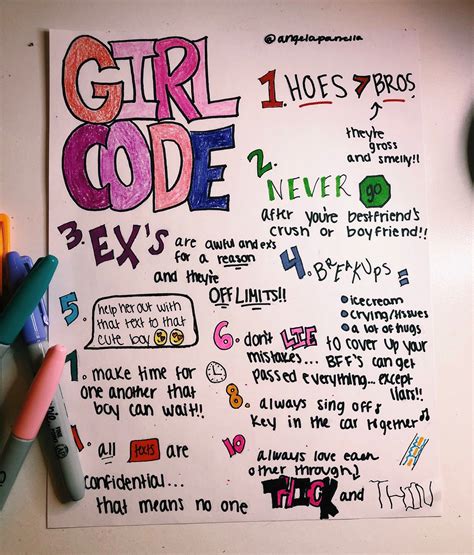 GIRL
CODE
@angelaparrella
1. HOES > BROS
they're
gross
and smelly!!
2.
NEVER go
after you're bestfriend's
crush or boyfriend!!
3. EX'S are awful and exs
for a reason
and they're
OFF LIMITS!!
4. BREAKUPS =
icecream
crying/tissues
a lot of hugs
5. help her out with
that text to that
cute boy
6. don't LIE to cover up your
mistakes... BFF's can get
passed everything... except
liars!!
7. make time for
one another that
boy can wait!!
8. always sing off
key in the car together
9. all texts are
confidential...
that means no one
10 always love each
other through
THICK and THIN